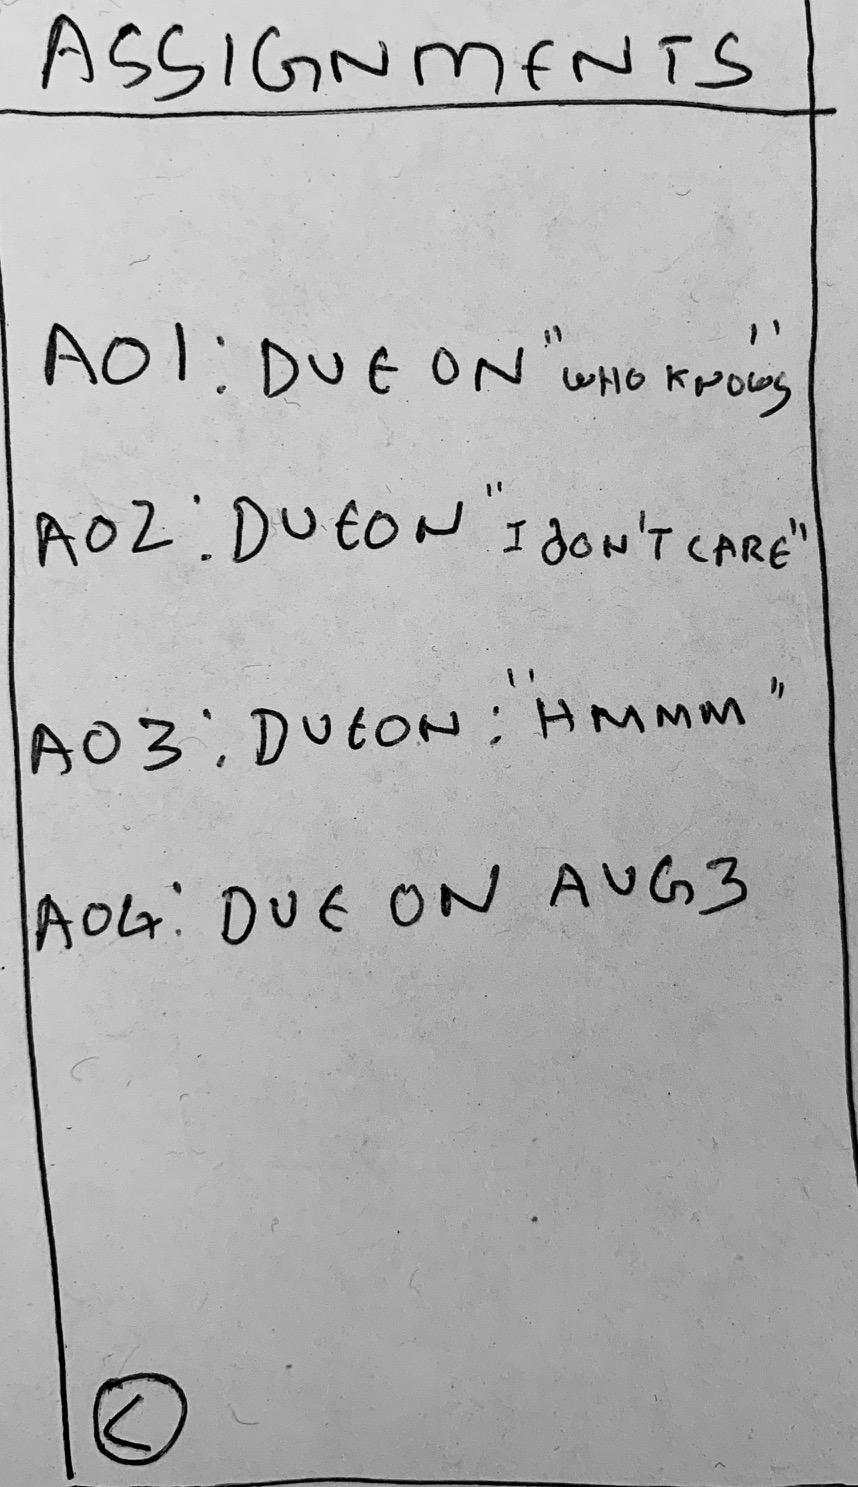 ASSIGNMENTS
A01: DUE ON "WHO KNOWS"
A02: DUE ON "I DON'T CARE"
A03: DUE ON: "HMMM"
A04: DUE ON AUG 3
<